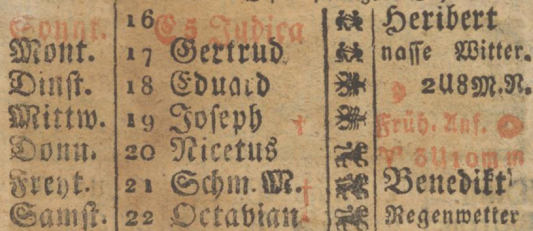 Sonnt. 16 E 5 Judica Heribert
Mont. 17 Gertrud nasse Witter.
Dinst. 18 Eduard 2U8M.N.
Mittw. 19 Joseph † Früh. Anf.
Donn. 20 Nicetus
Freyt. 21 Schm. M. † Benedikt
Samst. 22 Octavian Regenwetter